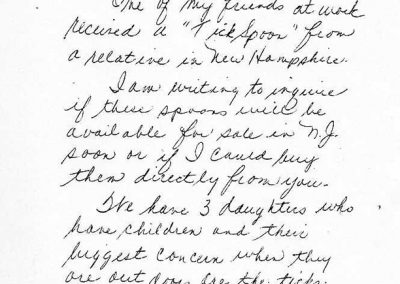 One of my friends at work
received a "Tick Spoon" from
a relative in New Hampshire.
I am writing to inquire
if these spoons will be
available for sale in N.J.
soon or if I could buy
them directly from you.
I've have 3 daughters who
have children and their
biggest concern when they
are out doors are the ticks.